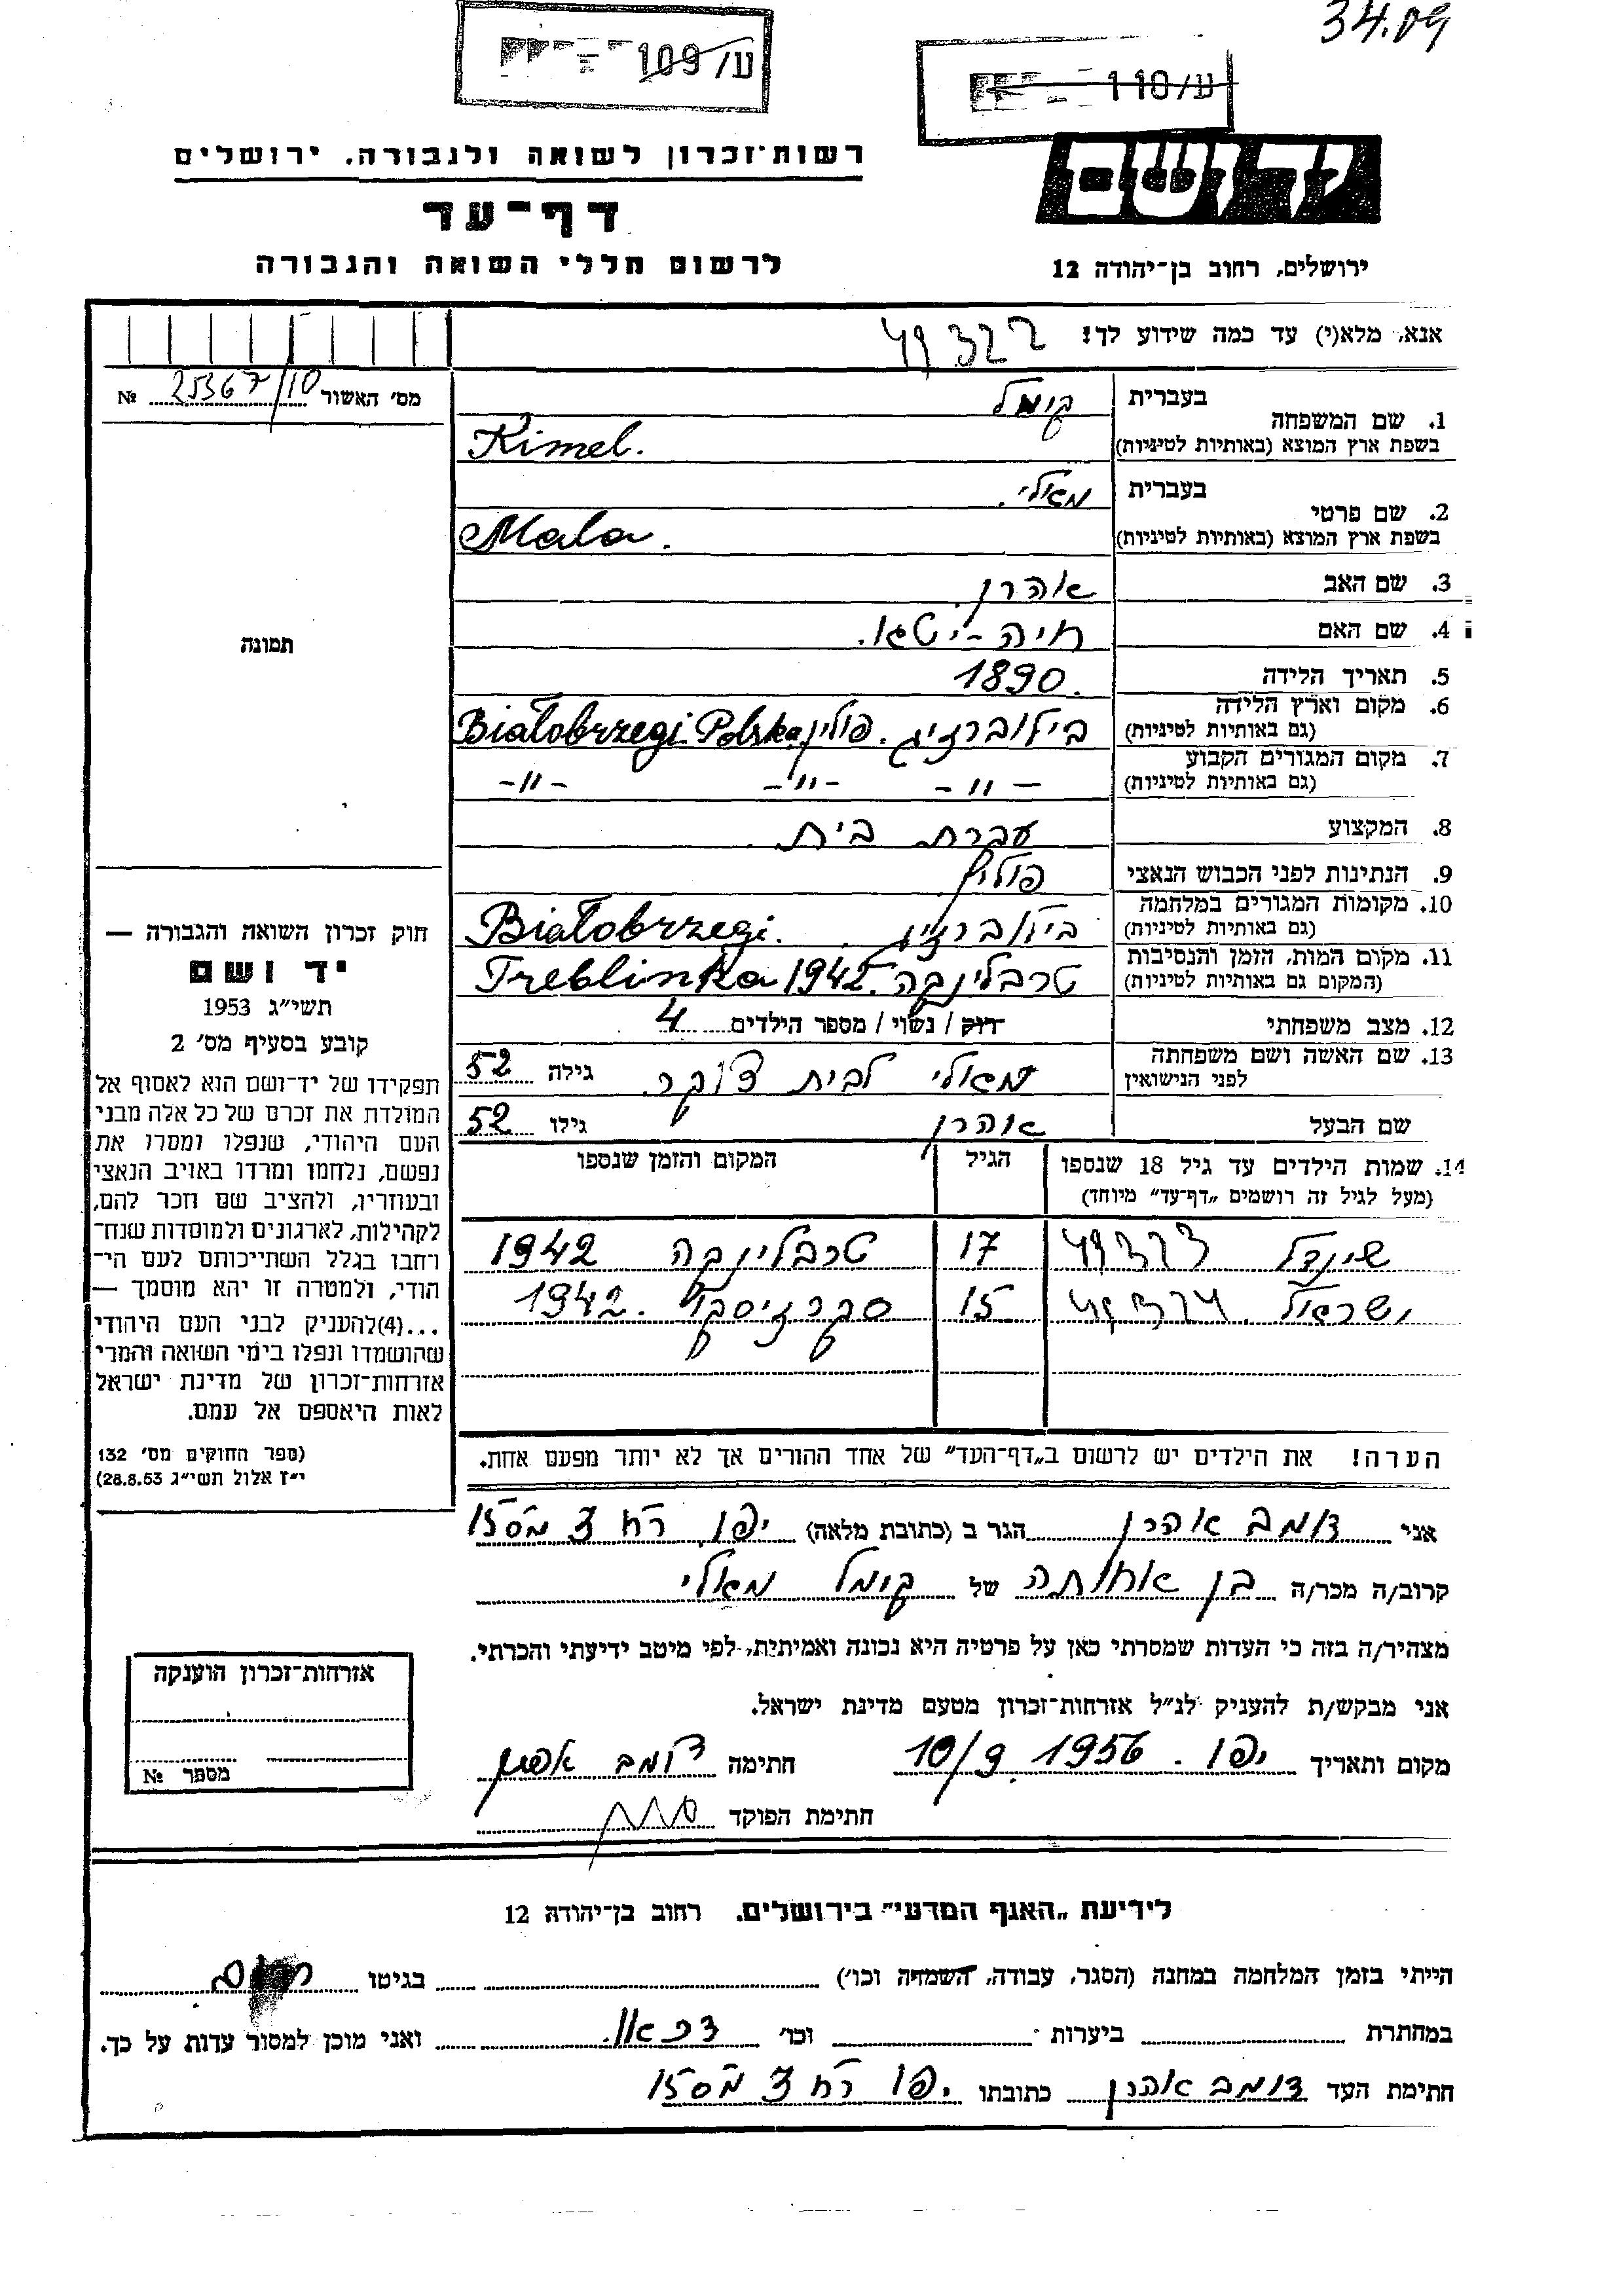 34.09
ע/109
ע/110
רשות־זכרון לשואה ולגבורה, ירושלים
יד ושם
דף־עד
לרשום חללי השואה והגבורה
ירושלים, רחוב בן־יהודה 12
אנא, מלא(י) עד כמה שידוע לך! 49322
מס׳ האשור 25367/10 №
1. שם המשפחה
בעברית קימל
בשפת ארץ המוצא (באותיות לטיניות) Kimel.
2. שם פרטי
בעברית מאלי.
בשפת ארץ המוצא (באותיות לטיניות) Mala.
3. שם האב אהרן
4. שם האם חיה - יטא.
5. תאריך הלידה 1890.
6. מקום וארץ הלידה
(גם באותיות לטיניות) בילוברזיג. פולין Białobrzegi Polska
7. מקום המגורים הקבוע
(גם באותיות לטיניות) -"- -"- -"-
8. המקצוע עקרת בית.
9. הנתינות לפני הכבוש הנאצי פולין
10. מקומות המגורים במלחמה
(גם באותיות לטיניות) Białobrzegi.
11. מקום המות, הזמן והנסיבות
(המקום גם באותיות לטיניות) טרבלינקה. Treblinka 1942
12. מצב משפחתי רוק / נשוי / מספר הילדים 4
13. שם האשה ושם משפחתה
לפני הנישואין מאלי לבית צוקר גילה 52
שם הבעל אהרן גילו 52
14. שמות הילדים עד גיל 18 שנספו
(מעל לגיל זה רושמים „דף־עד״ מיוחד)
הגיל
המקום והזמן שנספו
שינדל 49323 17 טרבלינקה 1942
ישראל 49324 15 1942.
הערה! את הילדים יש לרשום ב„דף־העד״ של אחד ההורים אך לא יותר מפעם אחת.
תמונה
חוק זכרון השואה והגבורה —
יד ושם
תשי״ג 1953
קובע בסעיף מס׳ 2
תפקידו של יד־ושם הוא לאסוף אל
המולדת את זכרם של כל אלה מבני
העם היהודי, שנפלו ומסרו את
נפשם, נלחמו ומרדו באויב הנאצי
ובעוזריו, ולהציב שם וזכר להם,
לקהילות, לארגונים ולמוסדות שנח־
רחבו בגלל השתייכותם לעם הי־
הודי, ולמטרה זו יהא מוסמך —
...(4)להעניק לבני העם היהודי
שהושמדו ונפלו בימי השואה והמרי
אזרחות־זכרון של מדינת ישראל
לאות היאספם אל עמם.
(ספר החוקים מס׳ 132
י״ז אלול תשי״ג 28.8.53)
אני דומב אהרן הגר ב (כתובת מלאה) יפו רח 3 מס 15
קרוב/ה מכר/ה בן אחותה של קימל מאלי
מצהיר/ה בזה כי העדות שמסרתי כאן על פרטיה היא נכונה ואמיתית, לפי מיטב ידיעתי והכרתי.
אני מבקש/ת להעניק לנ״ל אזרחות־זכרון מטעם מדינת ישראל.
מקום ותאריך יפו. 10/9 1956 חתימה דומב
חתימת הפוקד
אזרחות־זכרון הוענקה
מספר №
לידיעת „האגף המדעי״ בירושלים, רחוב בן־יהודה 12
הייתי בזמן המלחמה במחנה (הסגר, עבודה, השמדה וכו׳) בגיטו
במחתרת ביערות וכו׳ ואני מוכן למסור עדות על כך.
חתימת העד דומב אהרן כתובתו יפו רח 3 מס 15